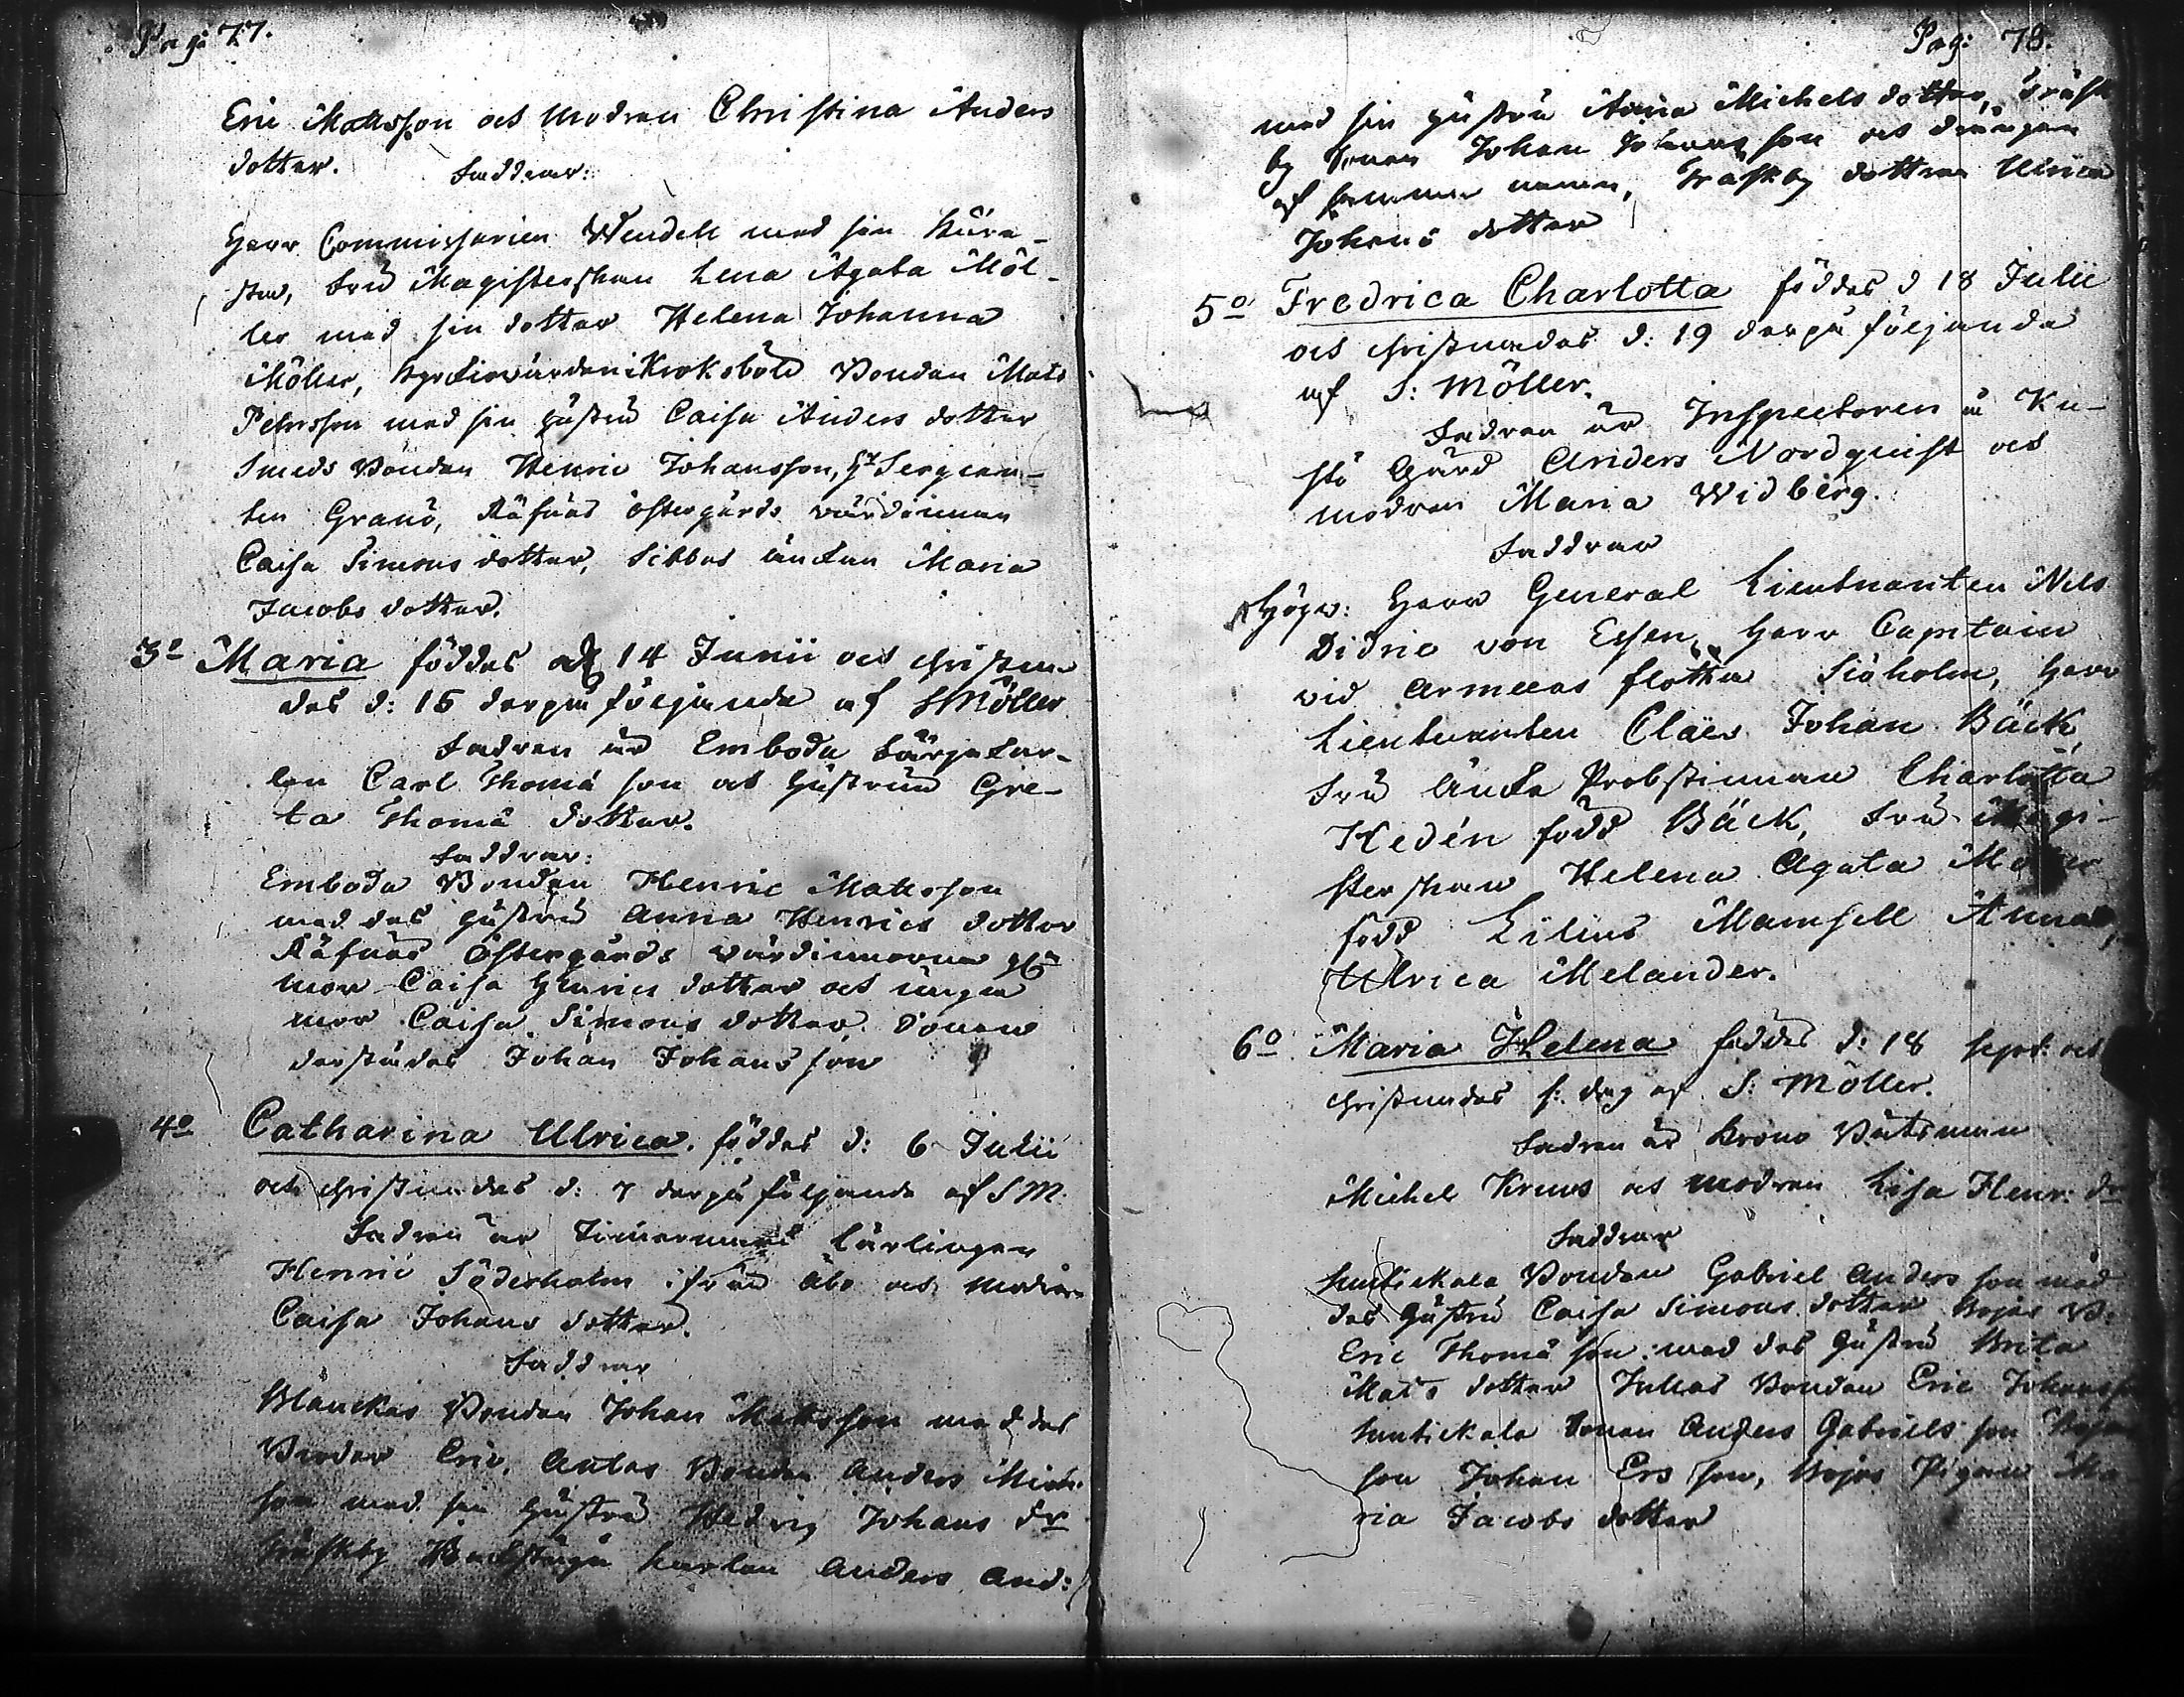 Pag: 77.
Eric Mattsson och Modren Christina Anders
dotter. Faddrar:
Herr Commissarien Wendell med sin Kära-
sta, Fru Magisterskan Lena Agata Möl-
ler med sin dotter Helena Johanna
Möller, i Kroksböle Bonden Mats
Pehrsson med sin hustru Caisa Anders dotter
Smeds Bonden Henric Johansson, Hr Sergean-
ten Granö, Räfnäs östergårds värdinnan
Caisa Simons dotter, Sibbas änkan Maria
Jacobs dotter.
3o Maria föddes d 14 Junii och christna-
des d: 15 derpå följande af S Möller
Fadren är Emboda
Carl Thomä son och hustrun Gre-
ta Thomä dotter.
Faddrar:
Emboda Bonden Henric Mattsson
med des hustru Anna Henrics dotter
Räfnäs Östergårds värdinnorna
mor Caisa Henrics dotter och unga
mor Caisa Simons dotter. Sonen
derstädes Johan Johans son
4o Catharina Ulrica. föddes d: 6 Julii
och christnades d: 7 derpå följande af S M.
Fadren är Timermans lärlingen
Henric Söderholm ifrån Åbo och modren
Caisa Johans dotter.
Faddrar
Blanckas Bonden Johan Mattsson med des
Broder Eric. Antas Bonden Anders Mich:
son med sin hustru Hedvig Johans dr
Träskby Backstugu karlen Anders And:
Pag: 78.
med sin hustru Anna Michels dotter, Träsk
by Sonen Johan Johans son och drängen
af samma namn, Träskby dottren Ulrica
Johans dotter
5o Fredrica Charlotta föddes d 18 Julii
och christnades d: 19 derpå följande
af S: Möller.
Fadren är Inspectoren å Ku-
stö Gård Anders Nordquist och
modren Maria Widberg.
Faddrar
Högv: Herr General Lieutnanten Nils
Didric von Essen, Herr Capitain
vid Armeens flotta Siöholm, Herr
Lieutnanten Claës Johan Bäck
Fru Änke Probstinnan Charlotta
Hedén född Bäck, Fru Magi-
sterskan Helena Agata Möller
född Lilius Mamsell Anna
Ulrica Melander.
6o Maria Helena föddes d: 18 Sept: och
christnades s: dag af S: Möller.
Fadren är Krono Båtsman
Michel Kruus och modren Lisa Henr: dr
Faddrar
Huntickala Bonden Gabriel Anders son med
des hustru Caisa Simons dotter Bojas B:
Eric Thomä son med des hustru Brita
Mats dotter Jullas Bonden Eric Johans s
Huntickala Sonen Anders Gabriels son
son Johan Ers son, Bojas Pigan Ma-
ria Jacobs dotter